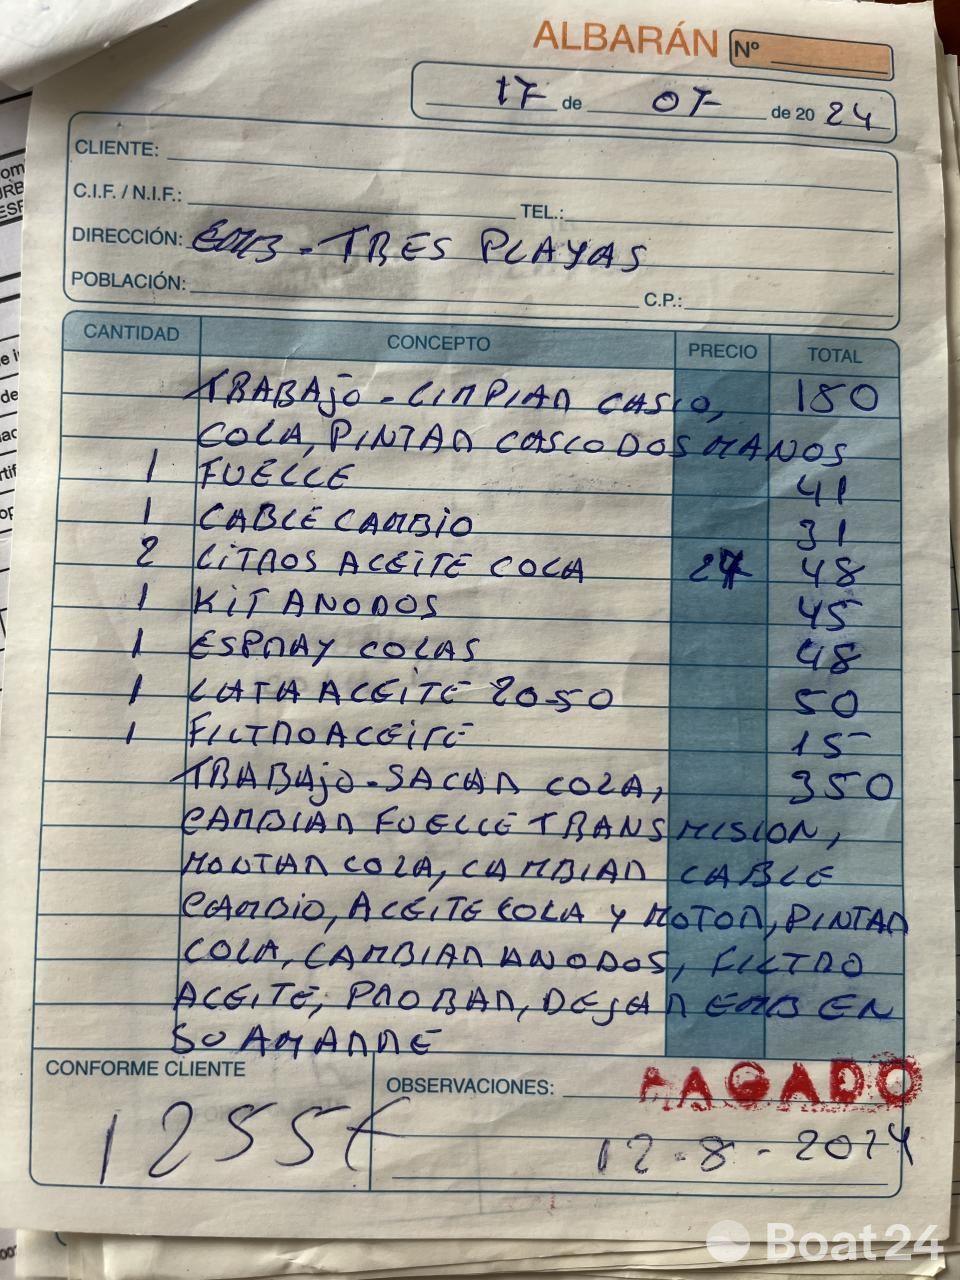 ALBARÁN Nº
17 de 07 de 20 24
CLIENTE:
C.I.F. / N.I.F.: TEL.:
DIRECCIÓN: EMB - TRES PLAYAS
POBLACIÓN: C.P.:
CANTIDAD CONCEPTO PRECIO TOTAL
TRABAJO - LIMPIAR CASCO, 180
COLA, PINTAR CASCO DOS MANOS
1 FUELLE 41
1 CABLE CAMBIO 31
2 LITROS ACEITE COLA 24 48
1 KIT ANODOS 45
1 ESPRAY COLAS 48
1 LATA ACEITE 20-50 50
1 FILTRO ACEITE 15
TRABAJO - SACAR COLA, 350
CAMBIAR FUELLE TRANSMISION,
MONTAR COLA, CAMBIAR CABLE
CAMBIO, ACEITE COLA Y MOTOR, PINTAR
COLA, CAMBIAR ANODOS, FILTRO
ACEITE, PROBAR, DEJAR EMB EN
SU AMARRE
CONFORME CLIENTE
OBSERVACIONES: PAGADO
1255€
12-8-2024
Boat24